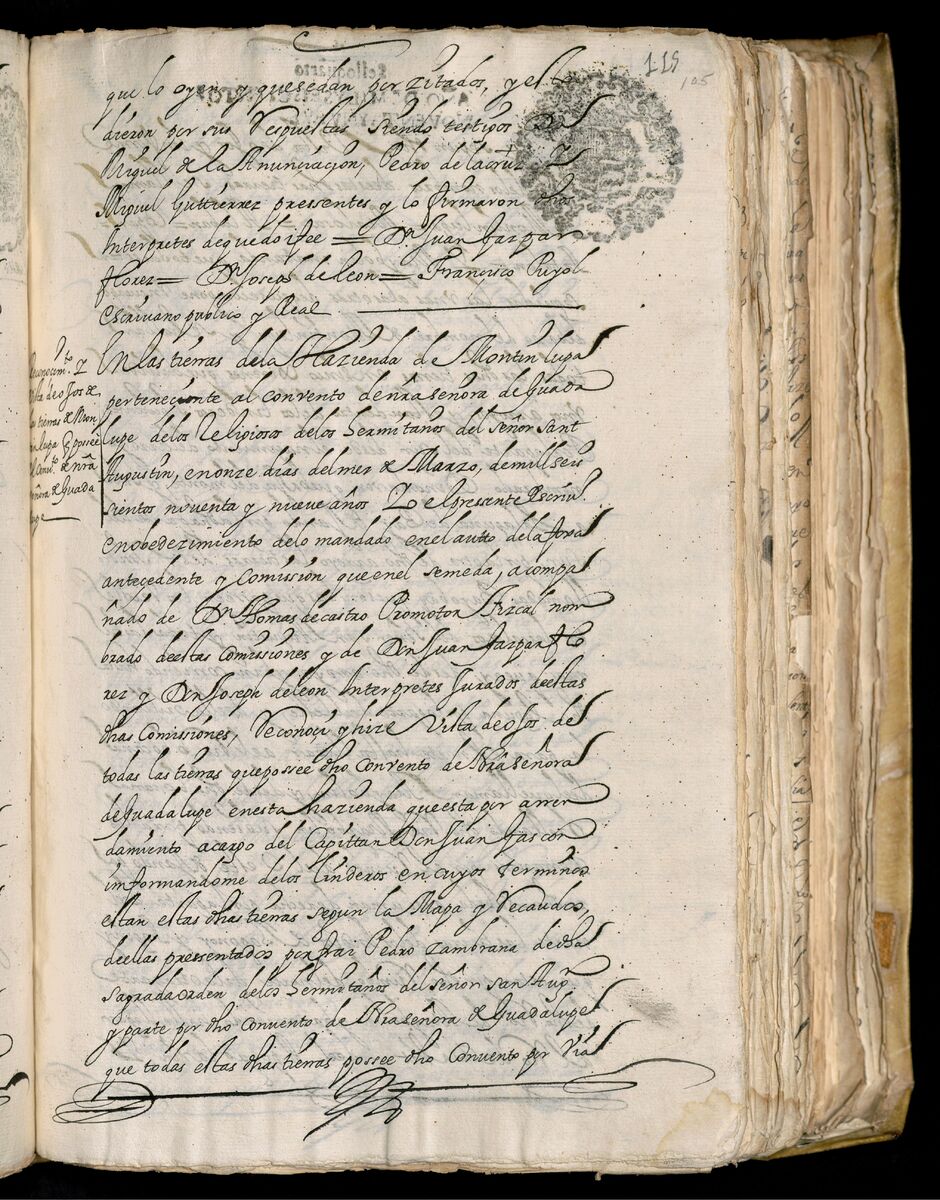 115
105
que lo oyen y quesedan por zitados, y esto
dieron por sus Respuestas siendo testigos Dn
Miguel de la Anunciaçion, Pedro delacruz Y
Miguel Guttierrez pressentes y lo firmaron dhos
Interpretes dequedoifee = Dn Juan Gazpar
florez = Dn Joseph de leon = Françisco Puyol
escriuano publico y Real
En las tierras dela Hazienda de Montin lupa
perteneçiente al convento denra señora de Guada
lupe delos Religiosos delos hermitaños del señor Sant
Augustin, en onze dias del mes de Marzo, demill seis
sientos noventa y nueve años Yo el presente Escriu.
en obedezimiento delo mandado en el autto dela foxa
antecedente y comission que en el se me da, acompa
ñado de Dn Thomas de castro Promotor Fizcal nom
brado de estas comissiones y de Don Juan Gazpar flo
rez y Don Joseph de leon Interpretes Jurados de estas
dhas Comissiones, Reconoçi y hize Vista de ojos de
todas las tierras que possee dho convento de Nra señora
de Guadalupe en esta hazienda que esta por arren
damiento a cargo del Capittan Don Juan Gascon
imformandome delos linderos en cuyos terminos
estan estas dhas tierras segun la Mapa y Recaudos,
de ellas pressentados por frai Pedro Zambrana de dha
sagrada orden delos hermitaños del señor san Augn
y parte por dho Convento de Nra señora de Guadalupe
que todas estas dhas tierras possee dho Convento por Via
Reconocimto. Y
Vista de ojos de
las tierras de Mon
tinlupa q possee
el Convto. de nra
señora de Guada
lupe